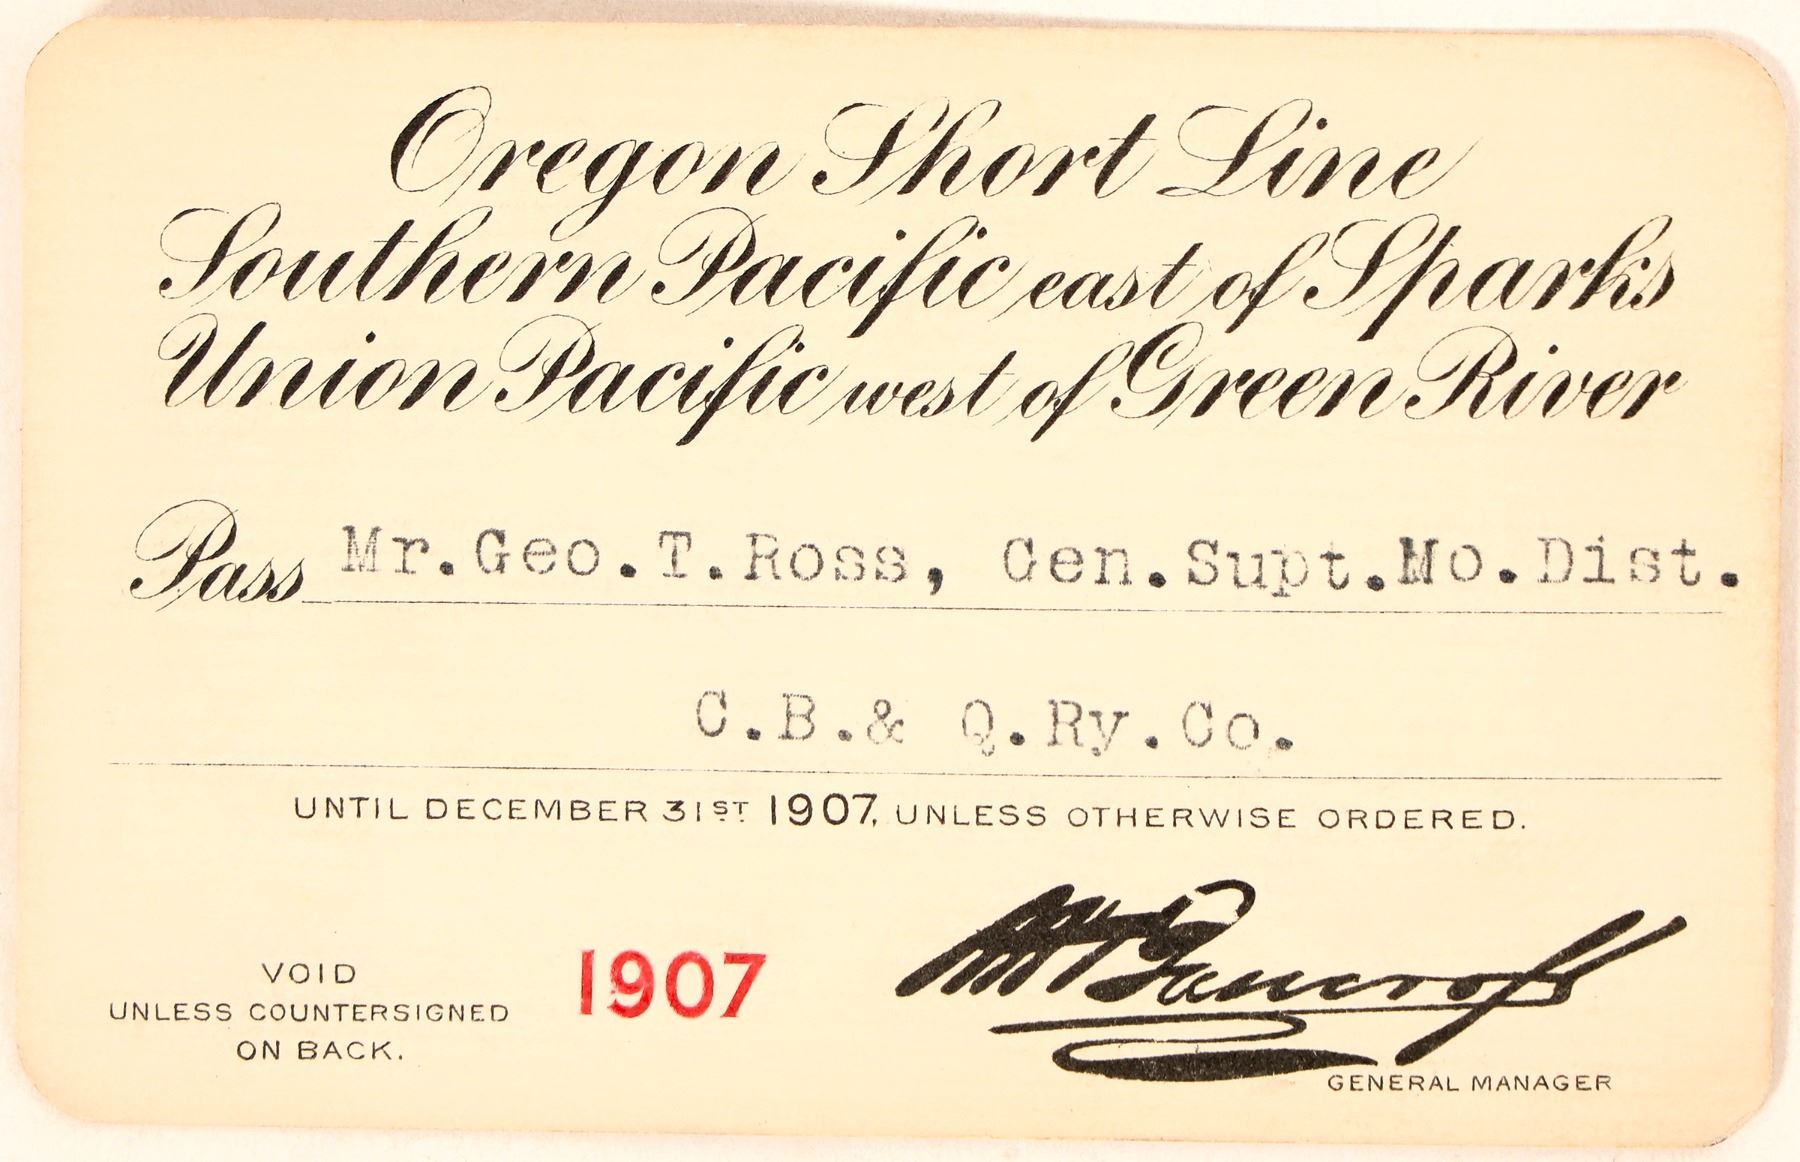 Oregon Short Line
Southern Pacific east of Sparks
Union Pacific west of Green River
Pass Mr.Geo.T.Ross, Gen.Supt.Mo.Dist.
C.B.& Q.Ry.Co.
UNTIL DECEMBER 31ST 1907, UNLESS OTHERWISE ORDERED.
VOID
UNLESS COUNTERSIGNED
ON BACK.
1907
Bancroft
GENERAL MANAGER